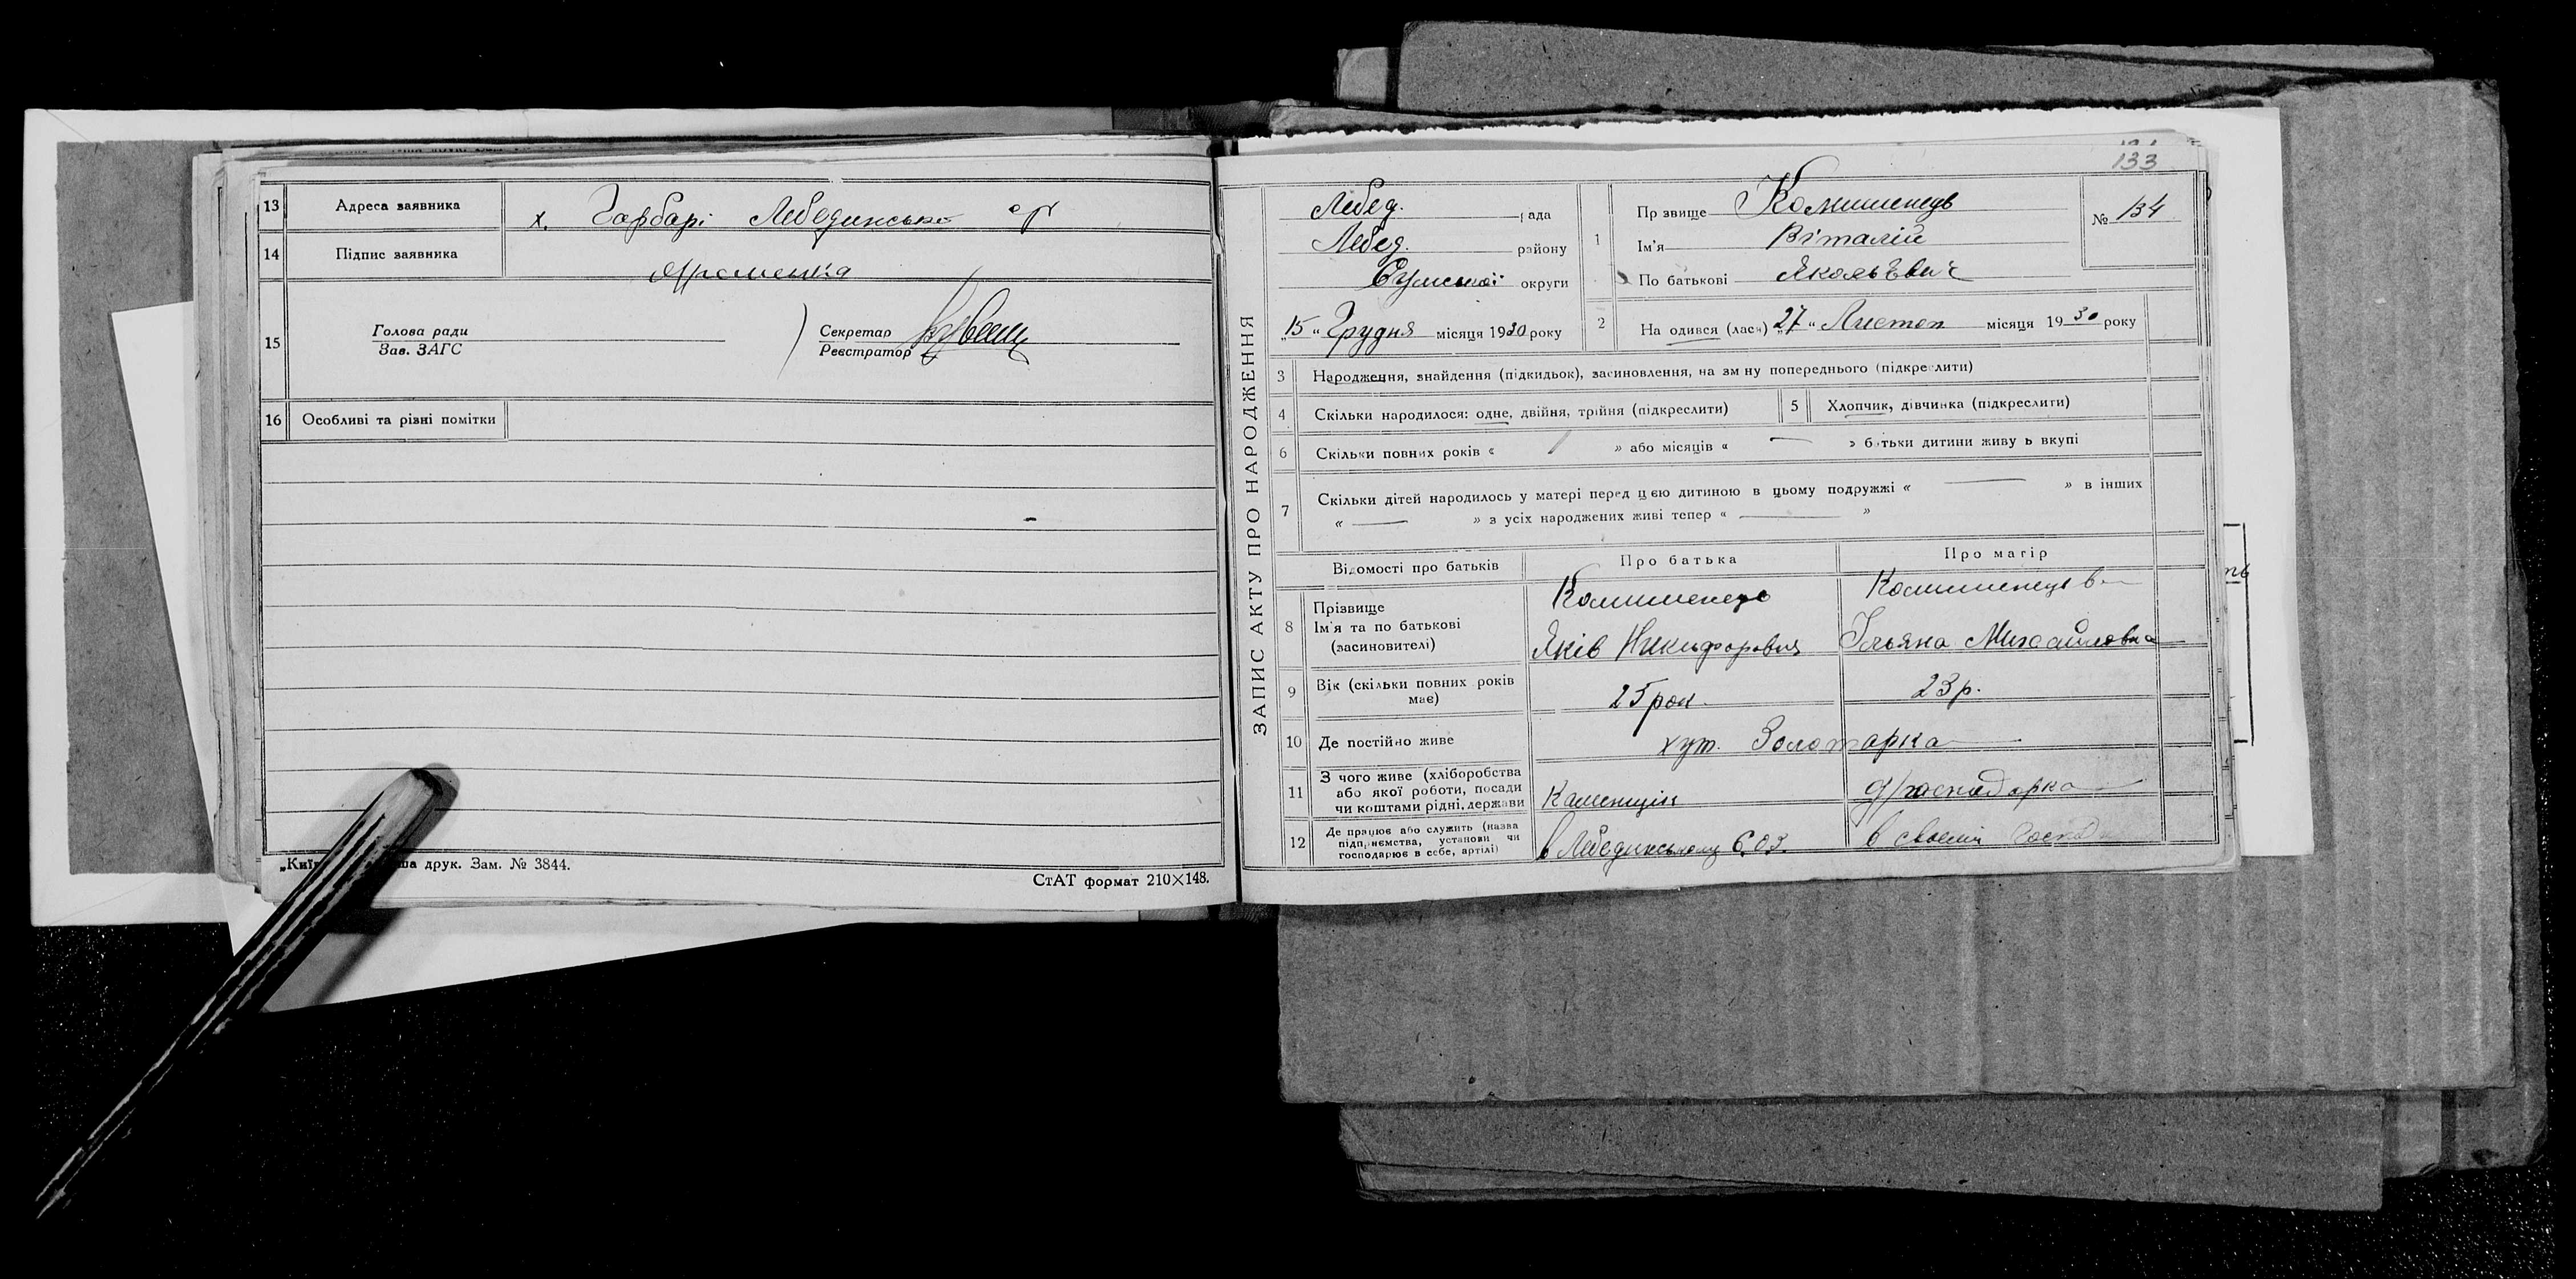 13 Адреса заявника х. Гарбарі Лебединсько
14 Підпис заявника
15 Голова ради
Зав. ЗАГС
Секретар
Реєстратор
16 Особливі та різні помітки
„Киї ша друк. Зам. № 3844.
СтАТ формат 210×148.
133
ЗАПИС АКТУ ПРО НАРОДЖЕННЯ
Лебед. рада
Лебед. району
Сумської округи
„15“ Грудня місяця 1930 року
1 Прізвище Комишенець
Ім'я Віталій
По батькові Якольевич
№ 134
2 На одився (лася) „27“ Листоп місяця 1930 року
3 Народження, знайдення (підкидьок), засиновлення, на зм ну попереднього (підкреслити)
4 Скільки народилося: одне, двійня, трійня (підкреслити) 5 Хлопчик, дівчинка (підкреслити)
6 Скільки повних років « 1 » або місяців « — » батьки дитини живу ь вкупі
7 Скільки дітей народилось у матері перед цією дитиною в цьому подружжі « — » в інших
« — » з усіх народжених живі тепер « — »
Відомості про батьків Про батька Про матір
8 Прізвище
Ім'я та по батькові
(засиновителі)
Комишенець
Яків Никифорович
Комишенець
Ільяна Михайловна
9 Вік (скільки повних років має) 25 рок. 23 р.
10 Де постійно живе хут. Золотарка
11 З чого живе (хліборобства
або якої роботи, посади
чи коштами рідні, держави
Каменщік
д/господарка
12 Де працює або служить (назва
підприємства, установи чи
господарює в себе, артілі)
в Лебединському
в своєми Госп